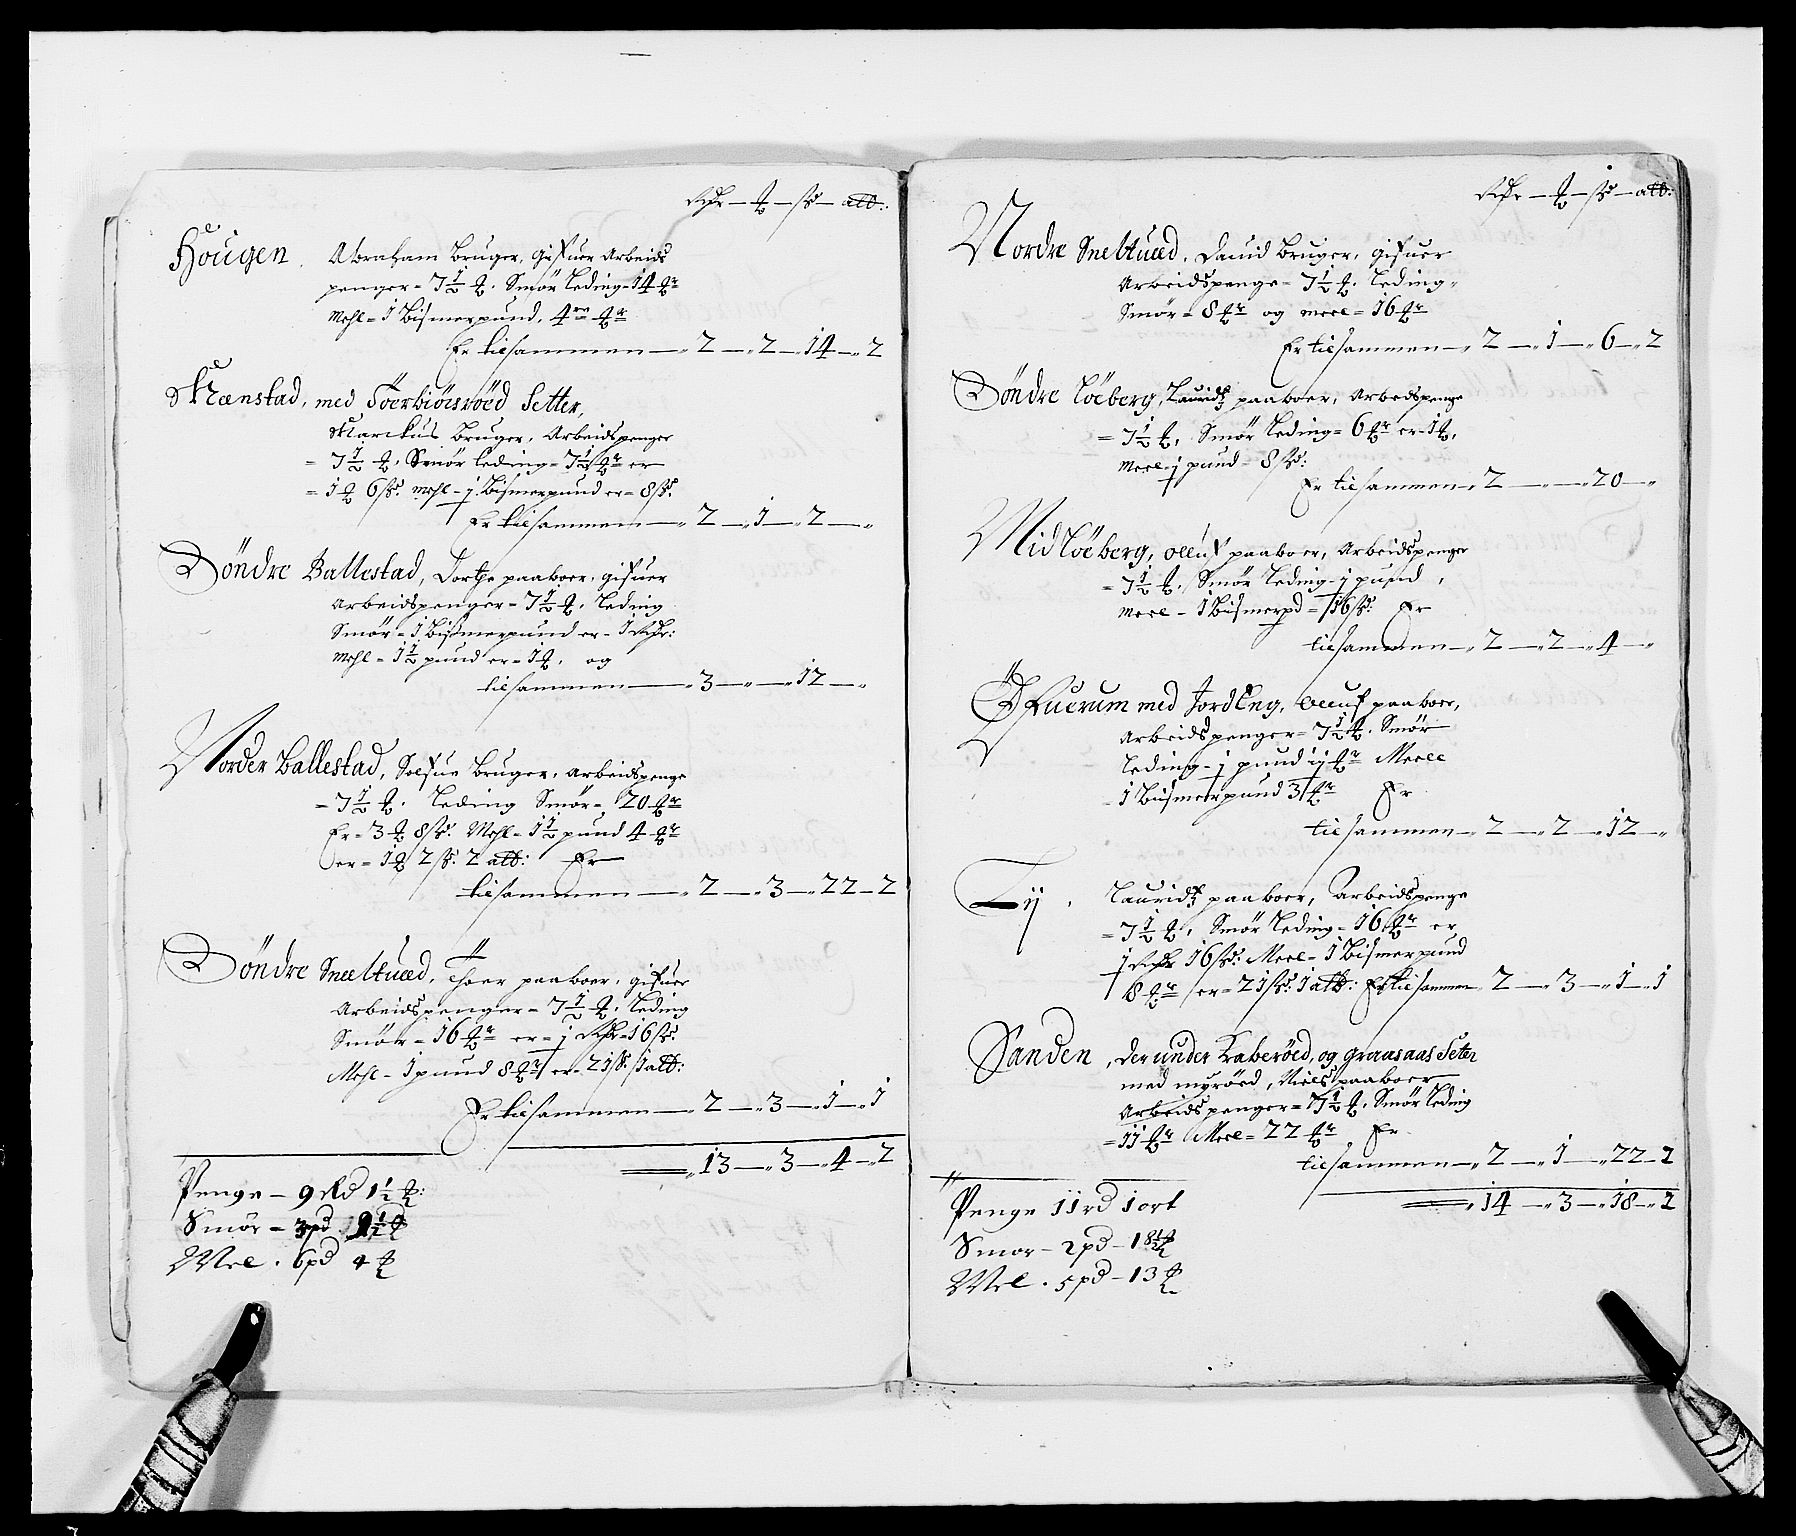 Rdr — ℔ — ß — alb:
Hougen. Abraham Bruger, gifuer Arbeids
penger = 7½ ℔. Smør leding = 14 ℔r
Mehl = 1 Bismerpund, 4 ℔r
Er tilsammen — 2 — 2 — 14 — 2
Mænstad, med Toerbiörsröed Setter,
Markus Bruger, Arbeidspenger
= 7½ ℔. Smør leding = 7½ ℔r er
= 1 ℔ 6 ß. mehl - j. Bismerpund er = 8 ß.
Er tilsammen — 2 — 1 — 2 —
Söndre Ballestad, Dortje paaboer, gifuer
Arbeidspenger = 7½ ℔. leding
Smør = 1 Bismerpund er - 1 Rdr:
Mehl = 1½ pund er = 1 ℔. og
tilsammen — 3 — — 12 —
Norder Ballestad, Solfue Bruger, Arbeidspenge
= 7½ ℔. leding Smør = 20 ℔r
Er = 3 ℔ 8 ß. Mehl = 1½ pund 4 ℔r
er = 1 ℔ 2 ß. 2 alb: Er
tilsammen — 2 — 3 — 22 — 2
Söndre Sneltued, Thoer paaboer, gifuer
Arbeidspenger = 7½ ℔. leding
Smør = 16 ℔r er = j Rdr = 16 ß.
Mehl - 1 pund 8 ℔r er = 21 ß. 1 alb:
Er tilsammen — 2 — 3 — 1 — 1
13 — 3 — 4 — 2
Penge — 9 Rd 1½ ℔:
Smör — 3 pd 9½ ℔
Mel. 6 pd 4 ℔
Rdr — ℔ — ß — alb:
Nordre Sneltued, Dauid Bruger, gifuer
Arbeidspenge = 7½ ℔. leding =
Smør = 8 ℔r og meel = 16 ℔r
Er tilsammen — 2 — 1 — 6 — 2
Söndre Löeberg, Lauridz paaboer, Arbedspenge
= 7½ ℔. Smør leding = 6 ℔r er - 1 ℔.
Meel - j pund = 8 ß:
Er tilsammen — 2 — — 20 —
Mid Löeberg, Oelluf paaboer, Arbeidspenger
= 7½ ℔. Smør leding - j pund,
meel - 1 Bismerpd = 16 ß: Er
tilsammen — 2 — 2 — 4 —
Öfuerum med Jordeng, Oeluf paaboer,
Arbeidspenger = 7½ ℔. Smør
leding - j pund ij ℔r Meell
1 Bismerpund 3 ℔r Er
tilsammen — 2 — 2 — 12 —
Lij, Lauridz paaboer, Arbeidspenge
= 7½ ℔. Smør leding = 16 ℔r er
j Rdr 16 ß: Meel - 1 Bismerpund
8 ℔r er = 21 ß: 1 alb: Er tilsammen 2 — 3 — 1 — 1
Sanden, der under Kaberöed, og graasaas Seter
med myröed, Niels paaboer
Arbeidspenger = 7½ ℔. Smør leding
= 11 ℔r Meel = 22 ℔r Er
tilsammen — 2 — 1 — 22 — 2
14 — 3 — 18 — 2
Penge 11 rd 1 ort
Smor — 2 pd — 18½ ℔
Mel. 5 pd — 13 ℔